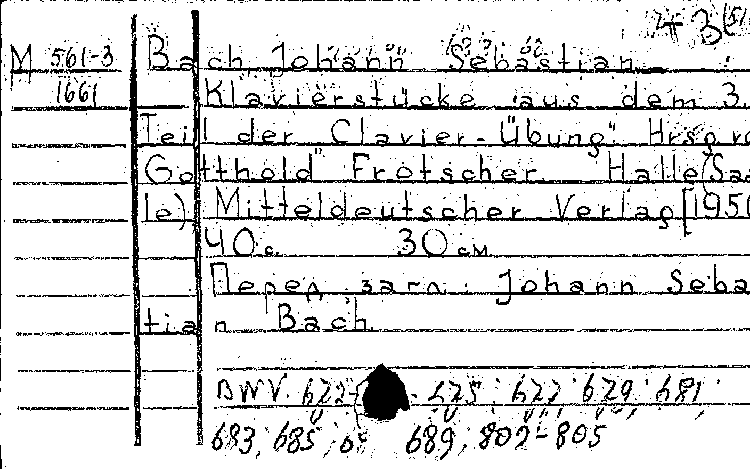 М 561-3
1661
Bach Johann Sebastian
Klavierstücke aus dem 3.
Teil der Clavier-Übung" Hrsg. vo
Gotthold Frotscher Halle(Saa
le), Mitteldeutscher Verlag [195
40 с. 30 см
Перед загл.: Johann Sebas
tian Bach
BWV. 675; 677; 679; 681;
683; 685; 689; 802-805